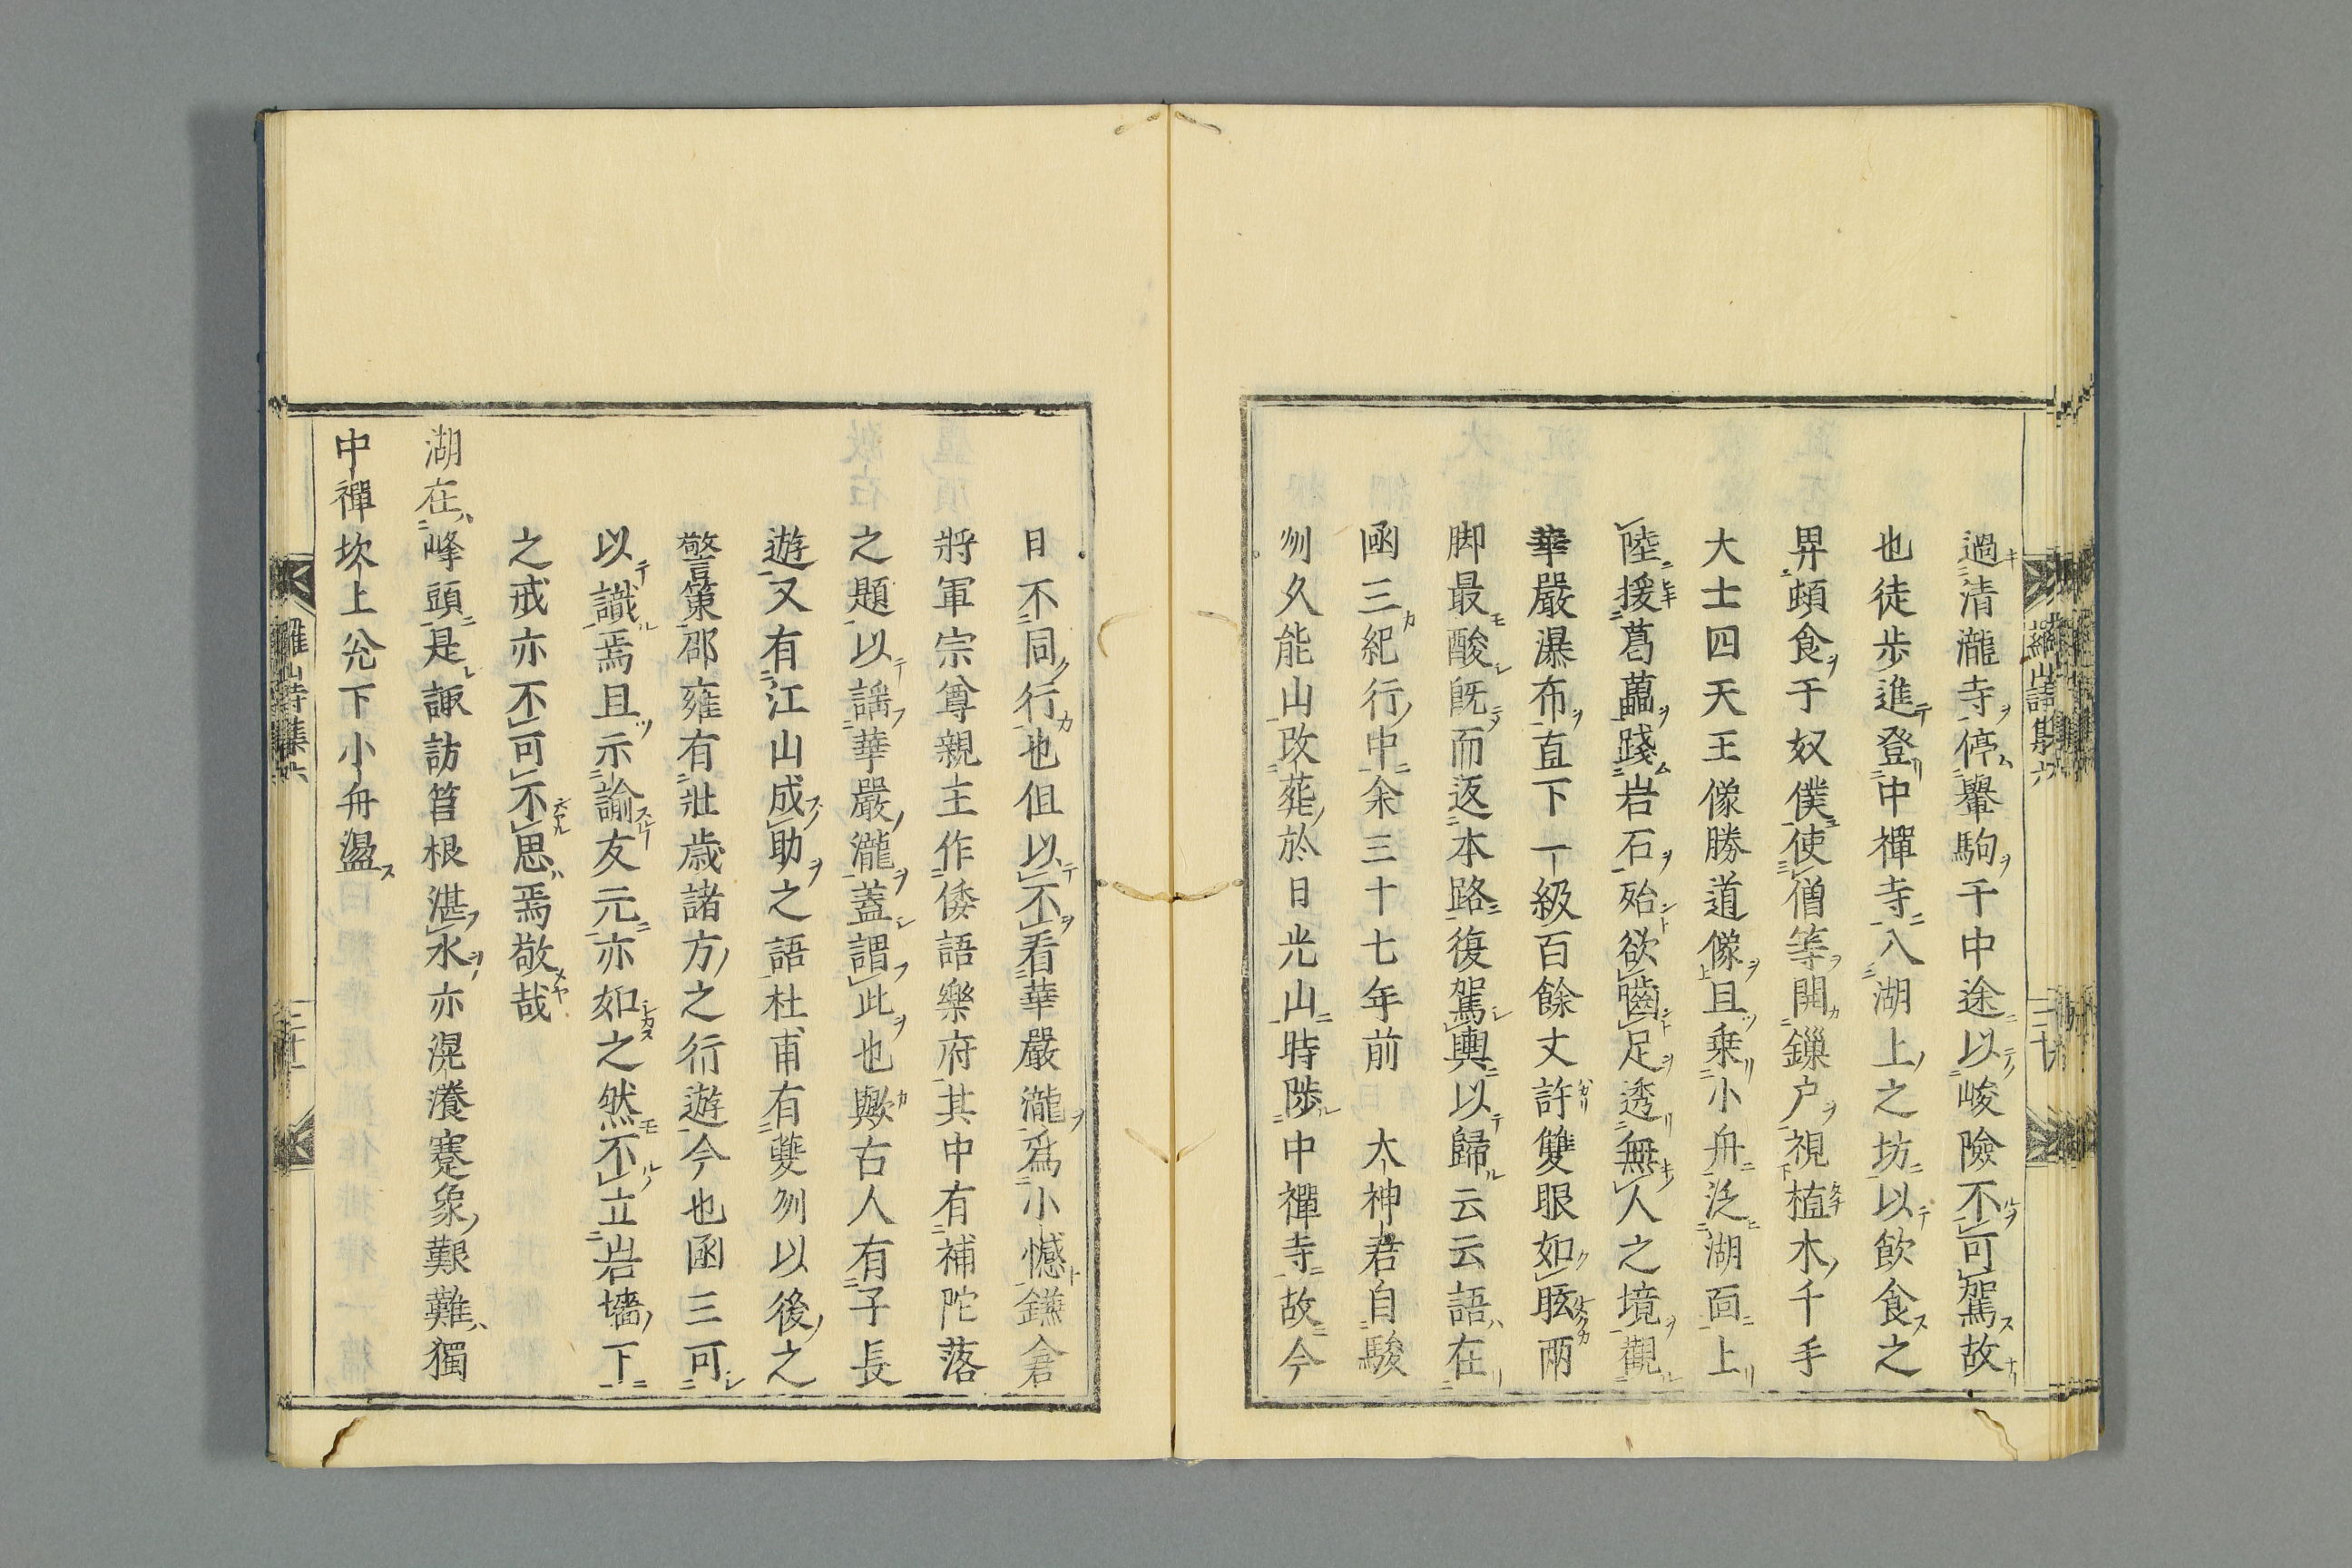 過清瀧寺停轝駒于中途以峻險不可駕故
也徒步進登中禪寺入湖上之坊以飲食之
畀頓食于奴僕使僧等開鏁户視植木千手
大士四天王像勝道像且乗小舟泛湖面上
陸援葛藟踐岩石殆欲嚙足透無人之境觀
華嚴瀑布直下一級百餘丈許雙眼如眩兩
脚最酸既而返本路復駕輿以歸云云語在
函三紀行中余三十七年前　大神君自駿
州久能山改葬於日光山時陟中禪寺故今
日不同行也但以不看華嚴瀧爲小憾鎌倉
將軍宗尊親王作倭語樂府其中有補陀落
之題以謡華嚴瀧蓋謂此也歟古人有子長
遊又有江山成助之語杜甫有夔州以後之
警策邵雍有壯歳諸方之行遊今也函三可
以識焉且示諭友元亦如之然不立岩墻下
之戒亦不可不思焉敬哉
湖在峰頭是諏訪笞根湛水亦滉瀁蹇象艱難獨
中禪坎上兊下小舟盪
羅山詩集六
三十
羅山詩集六
三十一